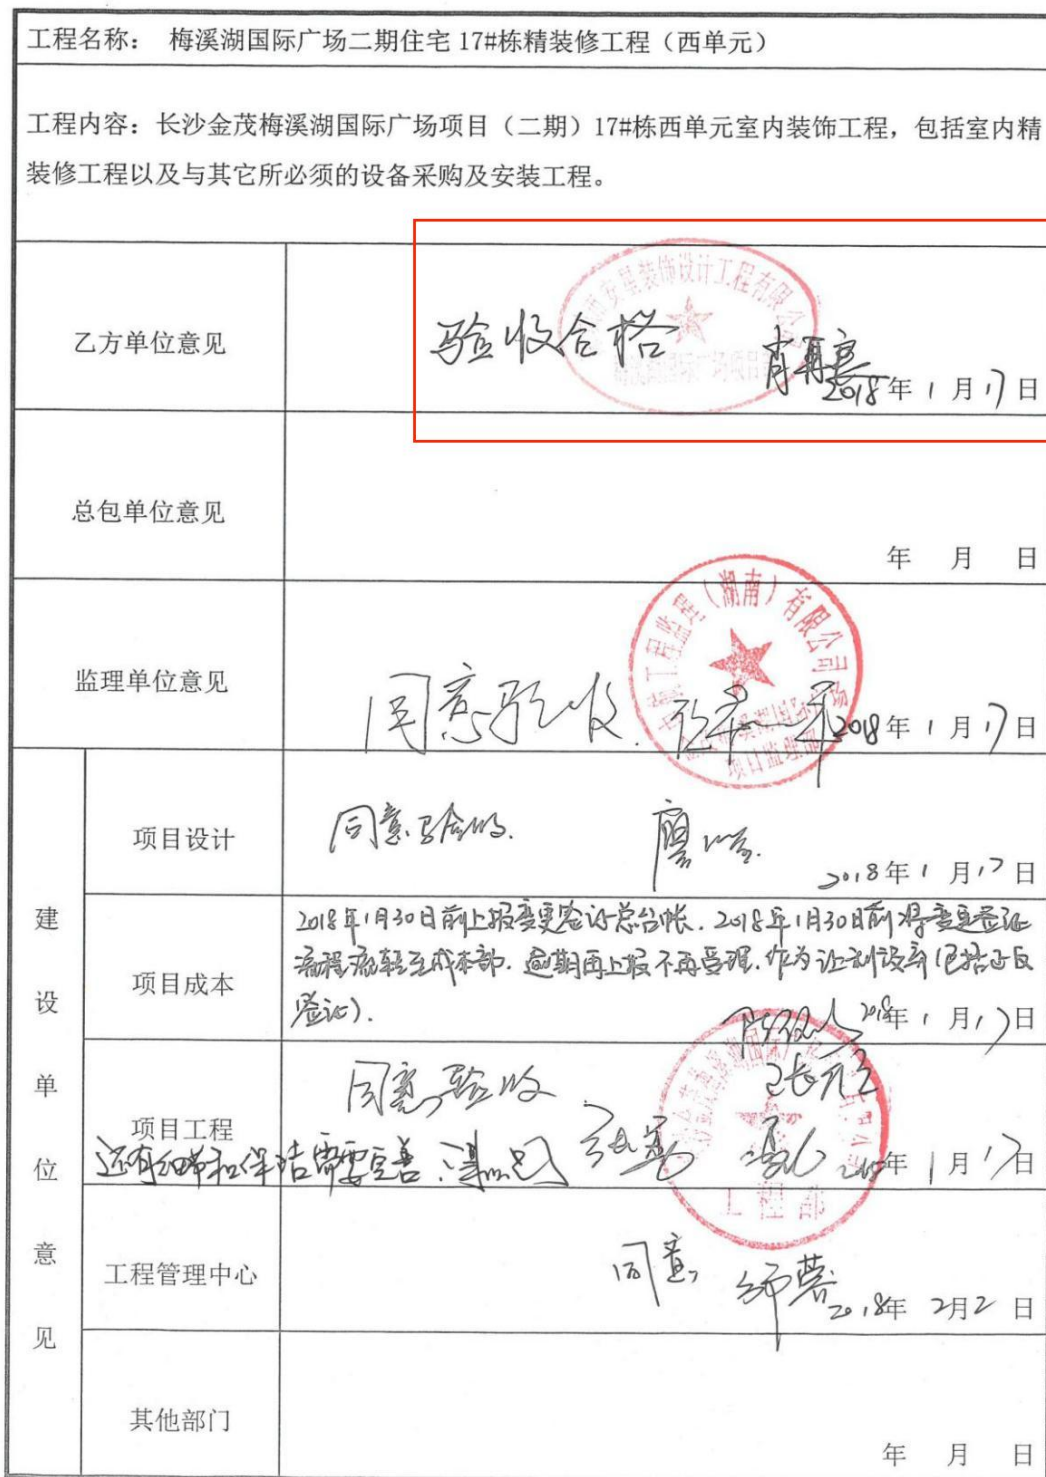 工程名称： 梅溪湖国际广场二期住宅 17#栋精装修工程（西单元）
工程内容：长沙金茂梅溪湖国际广场项目（二期）17#栋西单元室内装饰工程，包括室内精
装修工程以及与其它所必须的设备采购及安装工程。
乙方单位意见
验收合格
安星装饰设计工程有限公司
2018年1月17日
总包单位意见
年 月 日
监理单位意见
同意验收
工程监理（湖南）有限公司
项目监理部
2018年1月17日
建设单位意见
项目设计
同意验收.
2018年1月17日
项目成本
2018年1月30日前上报变更签证总台帐. 2018年1月30日前将变更签证
流程流转至成本部. 逾期再上报不再受理. 作为让利放弃(包括正反
签证).
2018年1月17日
项目工程
同意验收
还有细节和保洁需要完善.
工程部
年1月17日
工程管理中心
同意
2018年2月2日
其他部门
年 月 日